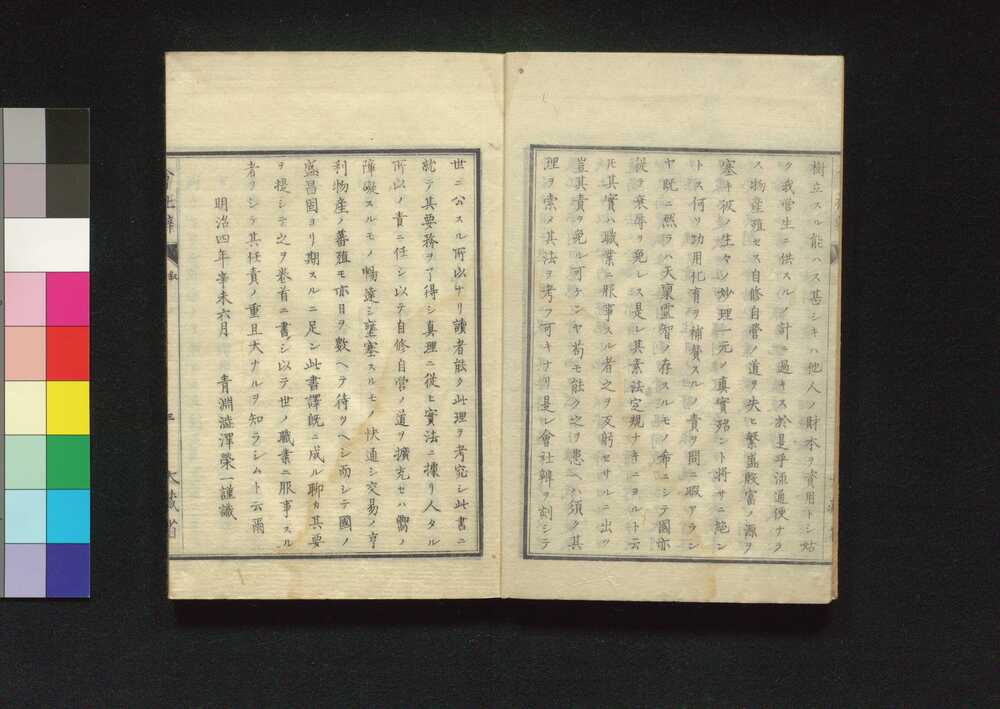 樹立スル能ハス甚シキハ他人ノ財本ヲ資用トシ姑
ク我営生ニ供スルノ計ニ過キス於是乎流通便ナラ
ス物産殖セス自修自営ノ道ヲ失ヒ繁盛殷富ノ源ヲ
塞キ彼ノ生々ノ妙理一元ノ真實殆ント将サニ絶ン
トス何ソ功用化育ヲ補賛スルノ責ヲ問ニ暇アラン
ヤ既ニ然ラハ天稟霊智ノ存スルモノ希ニシテ國亦
従ヲ衰辱ヲ免レス是レ其素法定規ナキニヨルト云
モ其實ハ職業ニ服事スル者之ヲ反躬セサルニ出ツ
豈其責ヲ免ル可ケンヤ苟モ能ク之ヲ患ヘハ須ク其
理ヲ索メ其法ヲ考フ可キナリ是レ會社辨ヲ刻シテ
世ニ公スル所以ナリ讀者能ク此理ヲ考究シ此書ニ
就テ其要務ヲ了得シ真理ニ従ヒ實法ニ據リ人タル
所以ノ責ニ任シ以テ自修自営ノ道ヲ擴充セハ嚮ノ
障礙スルモノ暢達シ壅塞スルモノ快通シ交易ノ亨
利物産ノ蕃殖モ亦日ヲ數ヘテ待ツヘシ而シテ國ノ
盛昌固ヨリ期スルニ足ン此書譯既ニ成ル聊カ其要
ヲ提シテ之ヲ巻首ニ書シ以テ世ノ職業ニ服事スル
者ヲシテ其任責ノ重且大ナルヲ知ラシムト云爾
明治四年辛未六月　青淵澁澤榮一謹識
會社辨　叙　三　大蔵省